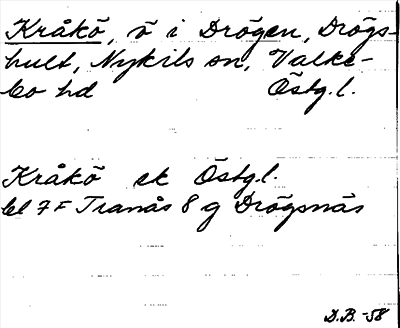 Kråkö, ö i Drögen, Drögs-
hult, Nykils sn, Valke-
bo hd Östg.l.
Kråkö ek Östg.l.
bl 7F Tranås 8 g Drögsnäs
D.B. -58